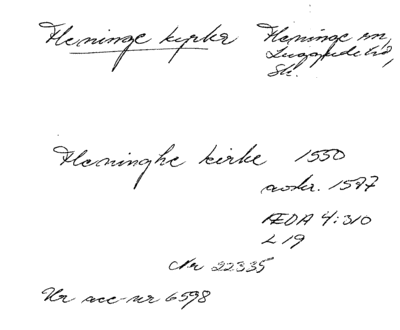 Fleninge kyrka Fleninge sn,
Luggude hd,
Sk.
Fleninghe kirke 1550
avskr. 1597
ÆDA 4:310
L 19
Nr 22335
Ur acc-nr 6598